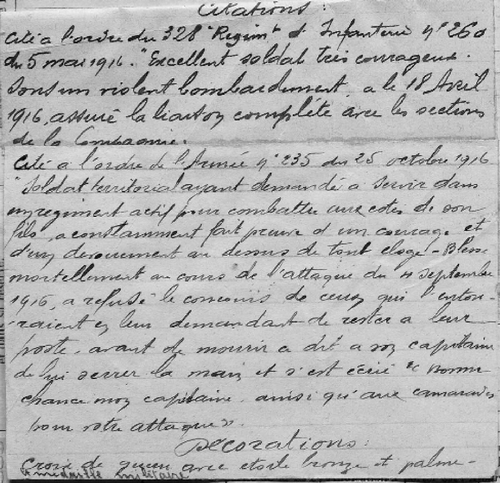 Citations :
Cité à l'ordre du 328e Regimt d'Infanterie nº 260
du 5 mai 1916. "Excellent soldat très courageux.
Sous un violent bombardement, a le 18 Avril
1916, assuré la liaison complète avec les sections
de la Compagnie.
Cité à l'ordre de l'Armée nº 235 du 25 octobre 1916
Soldat territorial ayant demandé à servir dans
un régiment actif pour combattre aux cotes de son
fils, a constamment fait preuve d'un courage et
d'un dévouement au dessus de tout éloge - Blessé
mortellement au cours de l'attaque du 4 septembre
1916, a refusé le concours de ceux qui l'entou-
raient en leur demandant de rester à leur
poste, avant de mourir a dit à son capitaine
de lui serrer la main et s'est écrié "Bonne
chance mon capitaine, ainsi qu'aux camarades
pour votre attaque".
Décorations :
Croix de guerre avec etoile bronze et palme -
médaille militaire